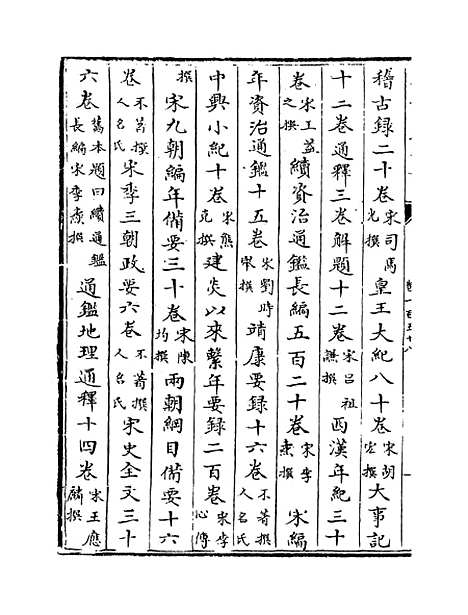 稽古録二十卷宋司馬光撰皇王大紀八十卷宋胡宏撰大事記
十二卷通釋三卷解題十二卷宋吕祖謙撰西漢年紀三十
卷宋王益之撰續資治通鑑長編五百二十卷宋李燾撰宋編
年資治通鑑十五卷宋劉時舉撰靖康要録十六卷不著撰人名氏
中興小紀十卷宋熊克撰建炎以來繫年要録二百卷宋李心傳
撰宋九朝編年備要三十卷宋陳均撰兩朝綱目備要十六
卷不著撰人名氏宋季三朝政要六卷不著撰人名氏宋史全文三十
六卷舊本題曰續通鑑長編宋李燾撰通鑑地理通釋十四卷宋王應麟撰